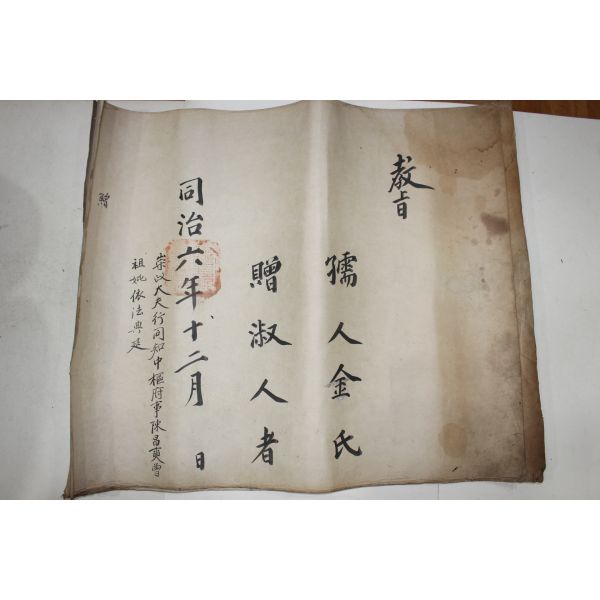 教旨
孺人金氏
贈淑人者
同治六年十二月 日
崇政大夫行同知中樞府事陳昌奭曾
祖妣依法典追
贈